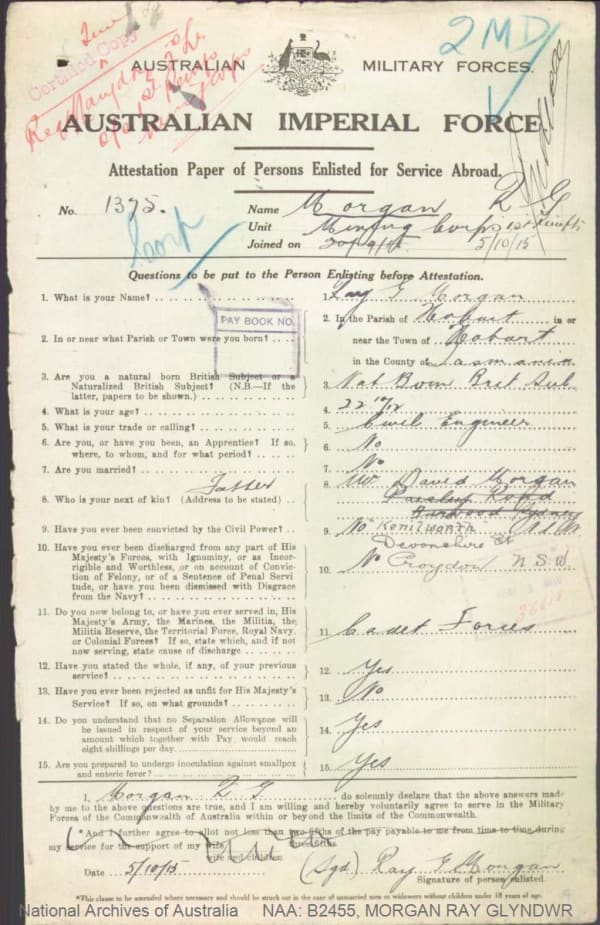 2 MD
Certified Copy
AUSTRALIAN MILITARY FORCES.
AUSTRALIAN IMPERIAL FORCE
Attestation Paper of Persons Enlisted for Service Abroad.
No. 1375. Name Morgan R G
Unit Mining Corps 1st Reinfts
Joined on 5/10/15
Questions to be put to the Person Enlisting before Attestation.
1. What is your Name? 1. Ray G Morgan
PAY BOOK NO.
2. In or near what Parish or Town were you born? 2. In the Parish of Hobart in or
near the Town of Hobart
in the County of Tasmania
3. Are you a natural born British Subject or a
Naturalized British Subject? (N.B.—If the
latter, papers to be shown.) 3. Nat Born Brit Sub
4. What is your age? 4. 22 10/12
5. What is your trade or calling? 5. Civil Engineer
6. Are you, or have you been, an Apprentice? If so,
where, to whom, and for what period? 6. No
7. Are you married? 7. No
Father
8. Who is your next of kin? (Address to be stated) 8. Mr David Morgan
Road
9. Have you ever been convicted by the Civil Power? 9. No "Kenilworth"
Devonshire St
10. Have you ever been discharged from any part of His
Majesty's Forces, with Ignominy, or as Incor-
rigible and Worthless, or on account of Convic-
tion of Felony, or of a Sentence of Penal Servi
tude, or have you been dismissed with Disgrace
from the Navy? 10. No Croydon N.S.W.
11. Do you now belong to, or have you ever served in, His
Majesty's Army, the Marines, the Militia, the
Militia Reserve, the Territorial Force, Royal Navy,
or Colonial Forces? If so, state which, and if not
now serving, state cause of discharge 11 Cadet Forces
12. Have you stated the whole, if any, of your previous
service? 12. Yes
13. Have you ever been rejected as unfit for His Majesty's
Service? If so, on what grounds? 13. No
14. Do you understand that no Separation Allowance will
be issued in respect of your service beyond an
amount which together with Pay would reach
eight shillings per day. 14 Yes
15. Are you prepared to undergo inoculation against smallpox
and enteric fever? 15. Yes
I, Morgan R G do solemnly declare that the above answers made
by me to the above questions are true, and I am willing and hereby voluntarily agree to serve in the Military
Forces of the Commonwealth of Australia within or beyond the limits of the Commonwealth.
*And I further agree to allot not less than two-fifths of the pay payable to me from time to time during
my service for the support of my wife
wife and children
Date 5/10/15 (Sgd) Ray G Morgan
Signature of person enlisted.
*This clause to be amended where necessary and should be struck out in the case of unmarried men or widowers without children under 18 years of age.
National Archives of Australia NAA: B2455, MORGAN RAY GLYNDWR